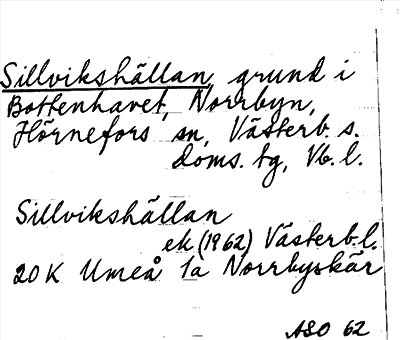 Sillvikshällan, grund i
Bottenhavet, Norrbyn,
Hörnefors sn, Västerb. s.
doms. tg, Vb. l.
Sillvikshällan
ek (1962) Västerb.l.
20 K Umeå 1a Norrbyskär
ASO 62